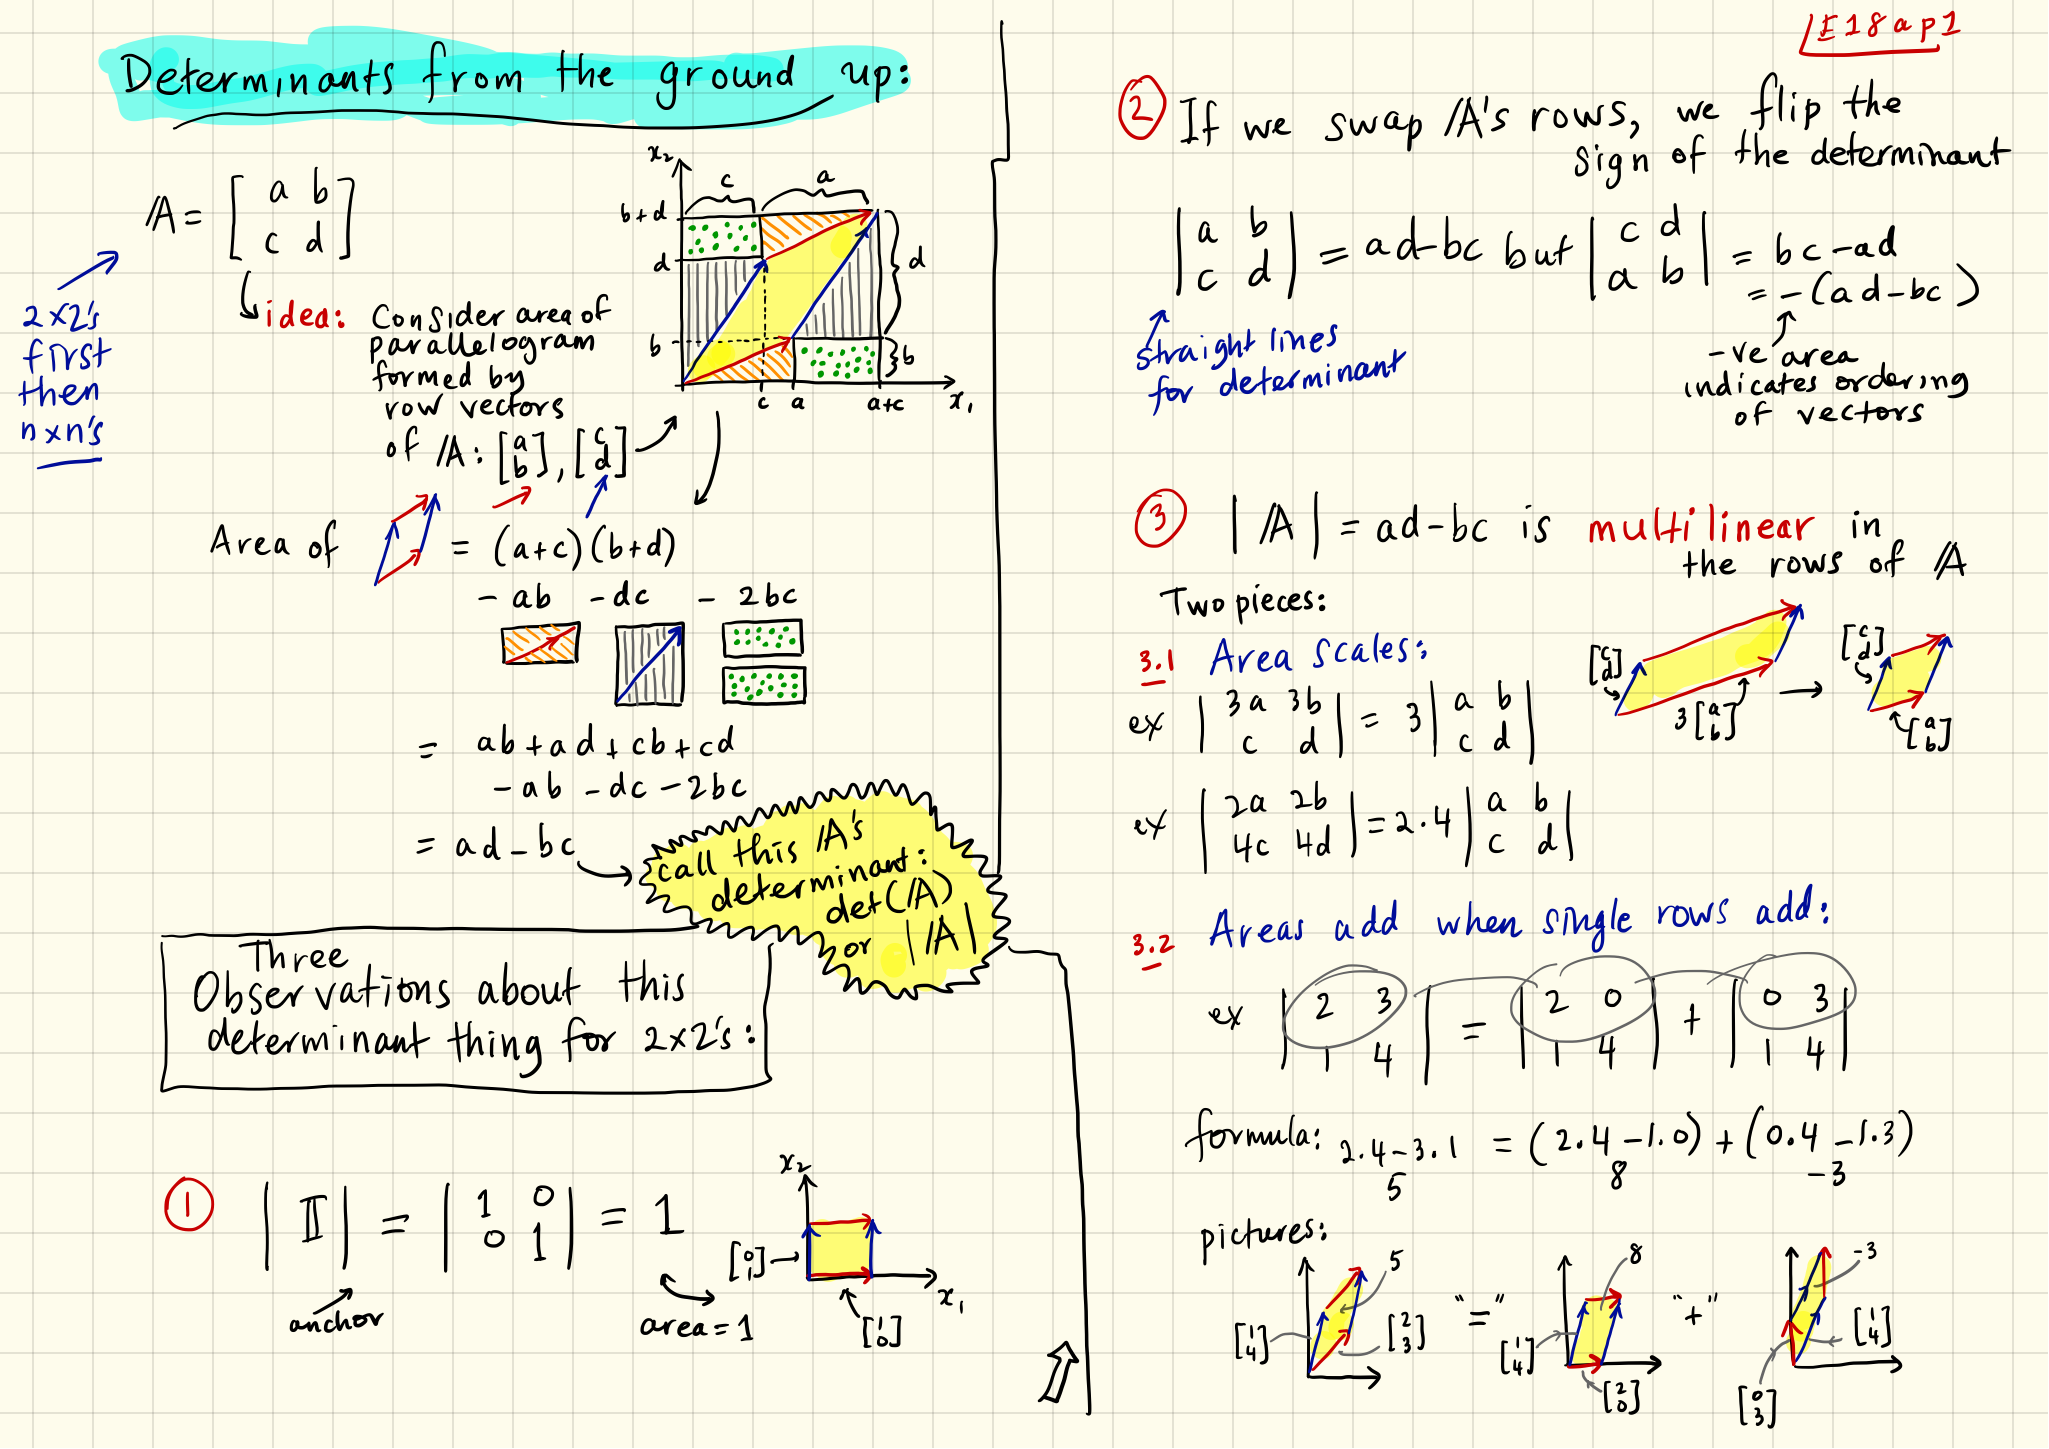 E18ap1
Determinants from the ground up:
A = [ a b
c d ]
2×2's
first
then
n×n's
idea: Consider area of
parallelogram
formed by
row vectors
of A: [a b], [c d]
x₂
c a
b+d
d d
b b
c a a+c x₁
Area of = (a+c)(b+d)
- ab - dc - 2bc
= ab + ad + cb + cd
- ab - dc - 2bc
= ad - bc
call this A's
determinant:
det(A)
or |A|
Three
Observations about this
determinant thing for 2×2's:
1 | I | = | 1 0
0 1 | = 1
anchor
area = 1
x₂
[0 1]
x₁
[1 0]
2 If we swap A's rows, we flip the
sign of the determinant
| a b
c d | = ad-bc but | c d
a b | = bc-ad
= -(ad-bc)
straight lines
for determinant
-ve area
indicates ordering
of vectors
3 | A | = ad-bc is multilinear in
the rows of A
Two pieces:
3.1 Area scales:
[c d] 3[a b]
[c d] [a b]
ex | 3a 3b
c d | = 3 | a b
c d |
ex | 2a 2b
4c 4d | = 2.4 | a b
c d |
3.2 Areas add when single rows add:
ex | 2 3
1 4 | = | 2 0
1 4 | + | 0 3
1 4 |
formula: 2.4-3.1 = (2.4-1.0) + (0.4-1.3)
5 8 -3
pictures:
5 8 -3
[1 4] [2 3] "=" [1 4] [2 0] "+" [0 3] [1 4]